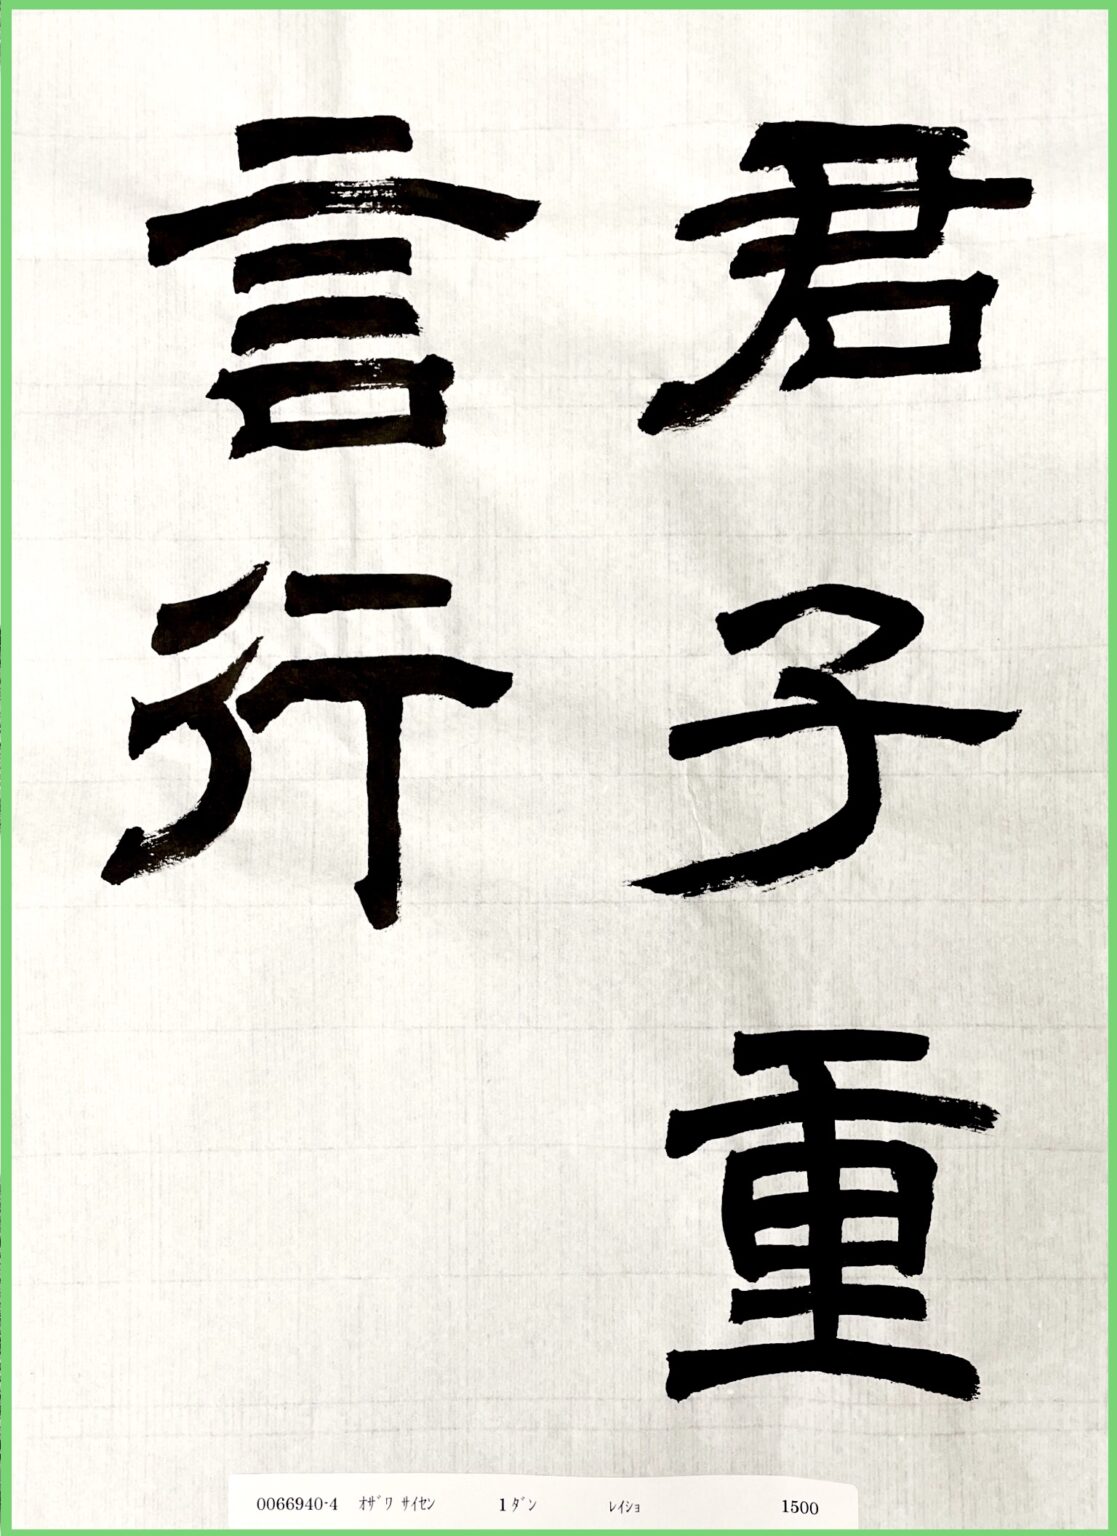 君子重
言行
0066940-4 ｵｻﾞﾜ ｻｲｾﾝ 1ﾀﾞﾝ ﾚｲｼｮ 1500